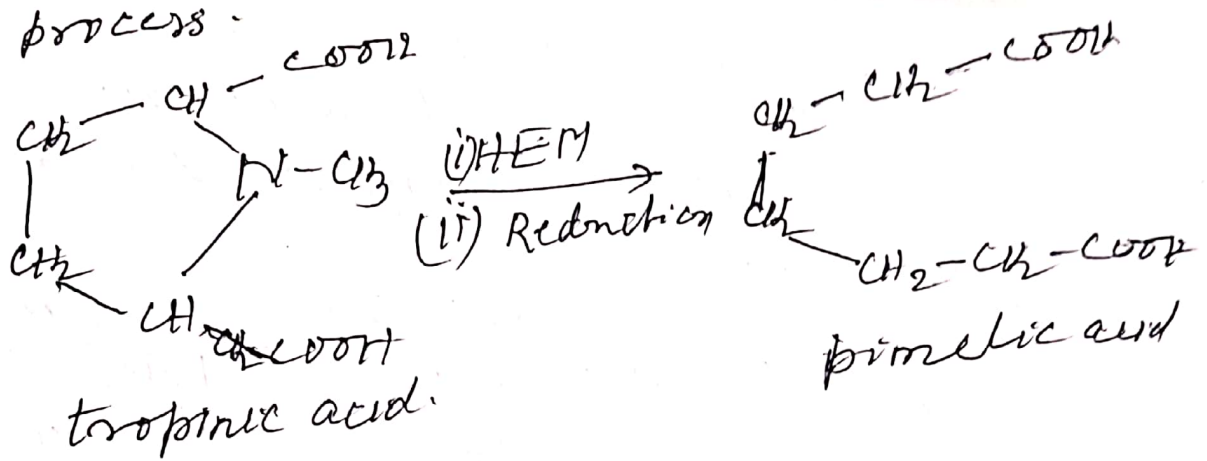 process.
CH2 - CH - COOH
N - CH3
CH2
CH - CH2COOH
tropinic acid.
(i) HEM
(ii) Reduction
CH2 - CH2 - COOH
CH2
CH2 - CH2 - COOH
pimelic acid